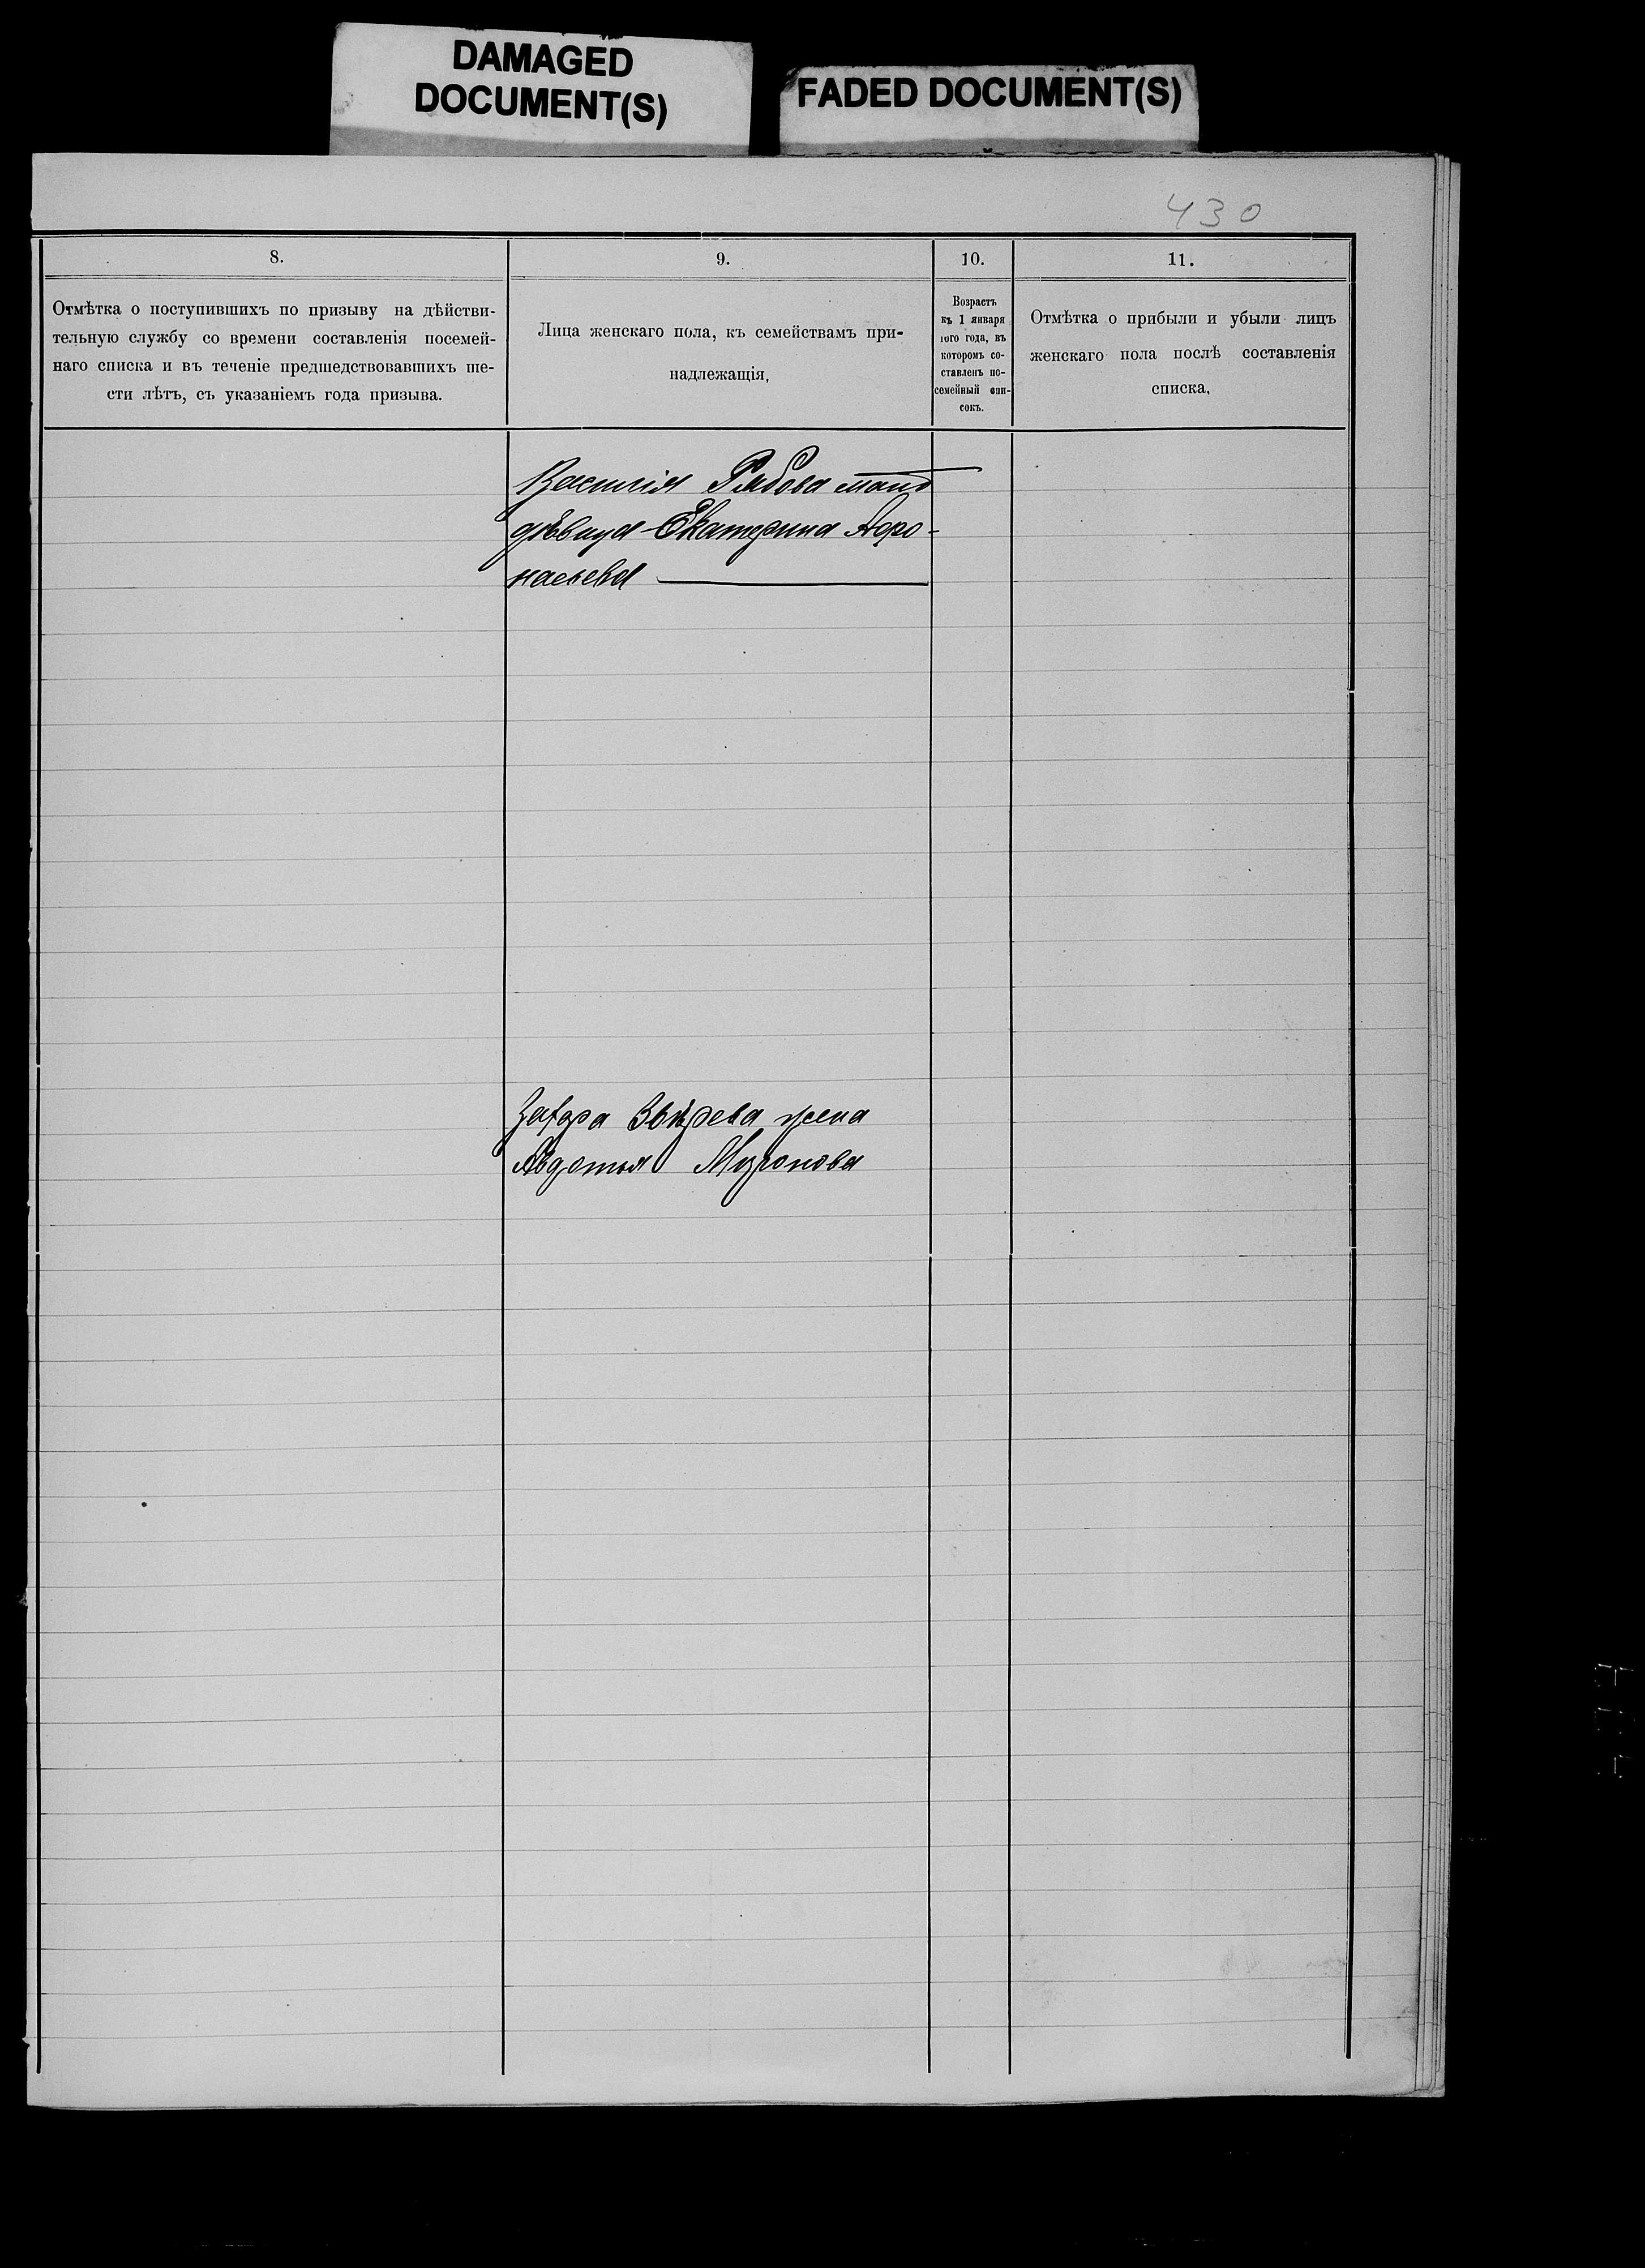 DAMAGED
DOCUMENT(S)
FADED DOCUMENT(S)
430
8.
9.
10.
11.
Отмѣтка о поступившихъ по призыву на дѣйстви-
тельную службу со времени составленія посемей-
наго списка и въ теченіе предшедствовавшихъ ше-
сти лѣтъ, съ указаніемъ года призыва.
Лица женскаго пола, къ семействамъ при-
надлежащія,
Возрастъ
къ 1 января
того года, въ
которомъ со-
ставленъ по-
семейный спи-
сокъ.
Отмѣтка о прибыли и убыли лицъ
женскаго пола послѣ составленія
списка,
Василія Рябова мать
дѣвица Екатерина Афо-
насьева
Захара Звѣрева жена
Авдотья Миронова